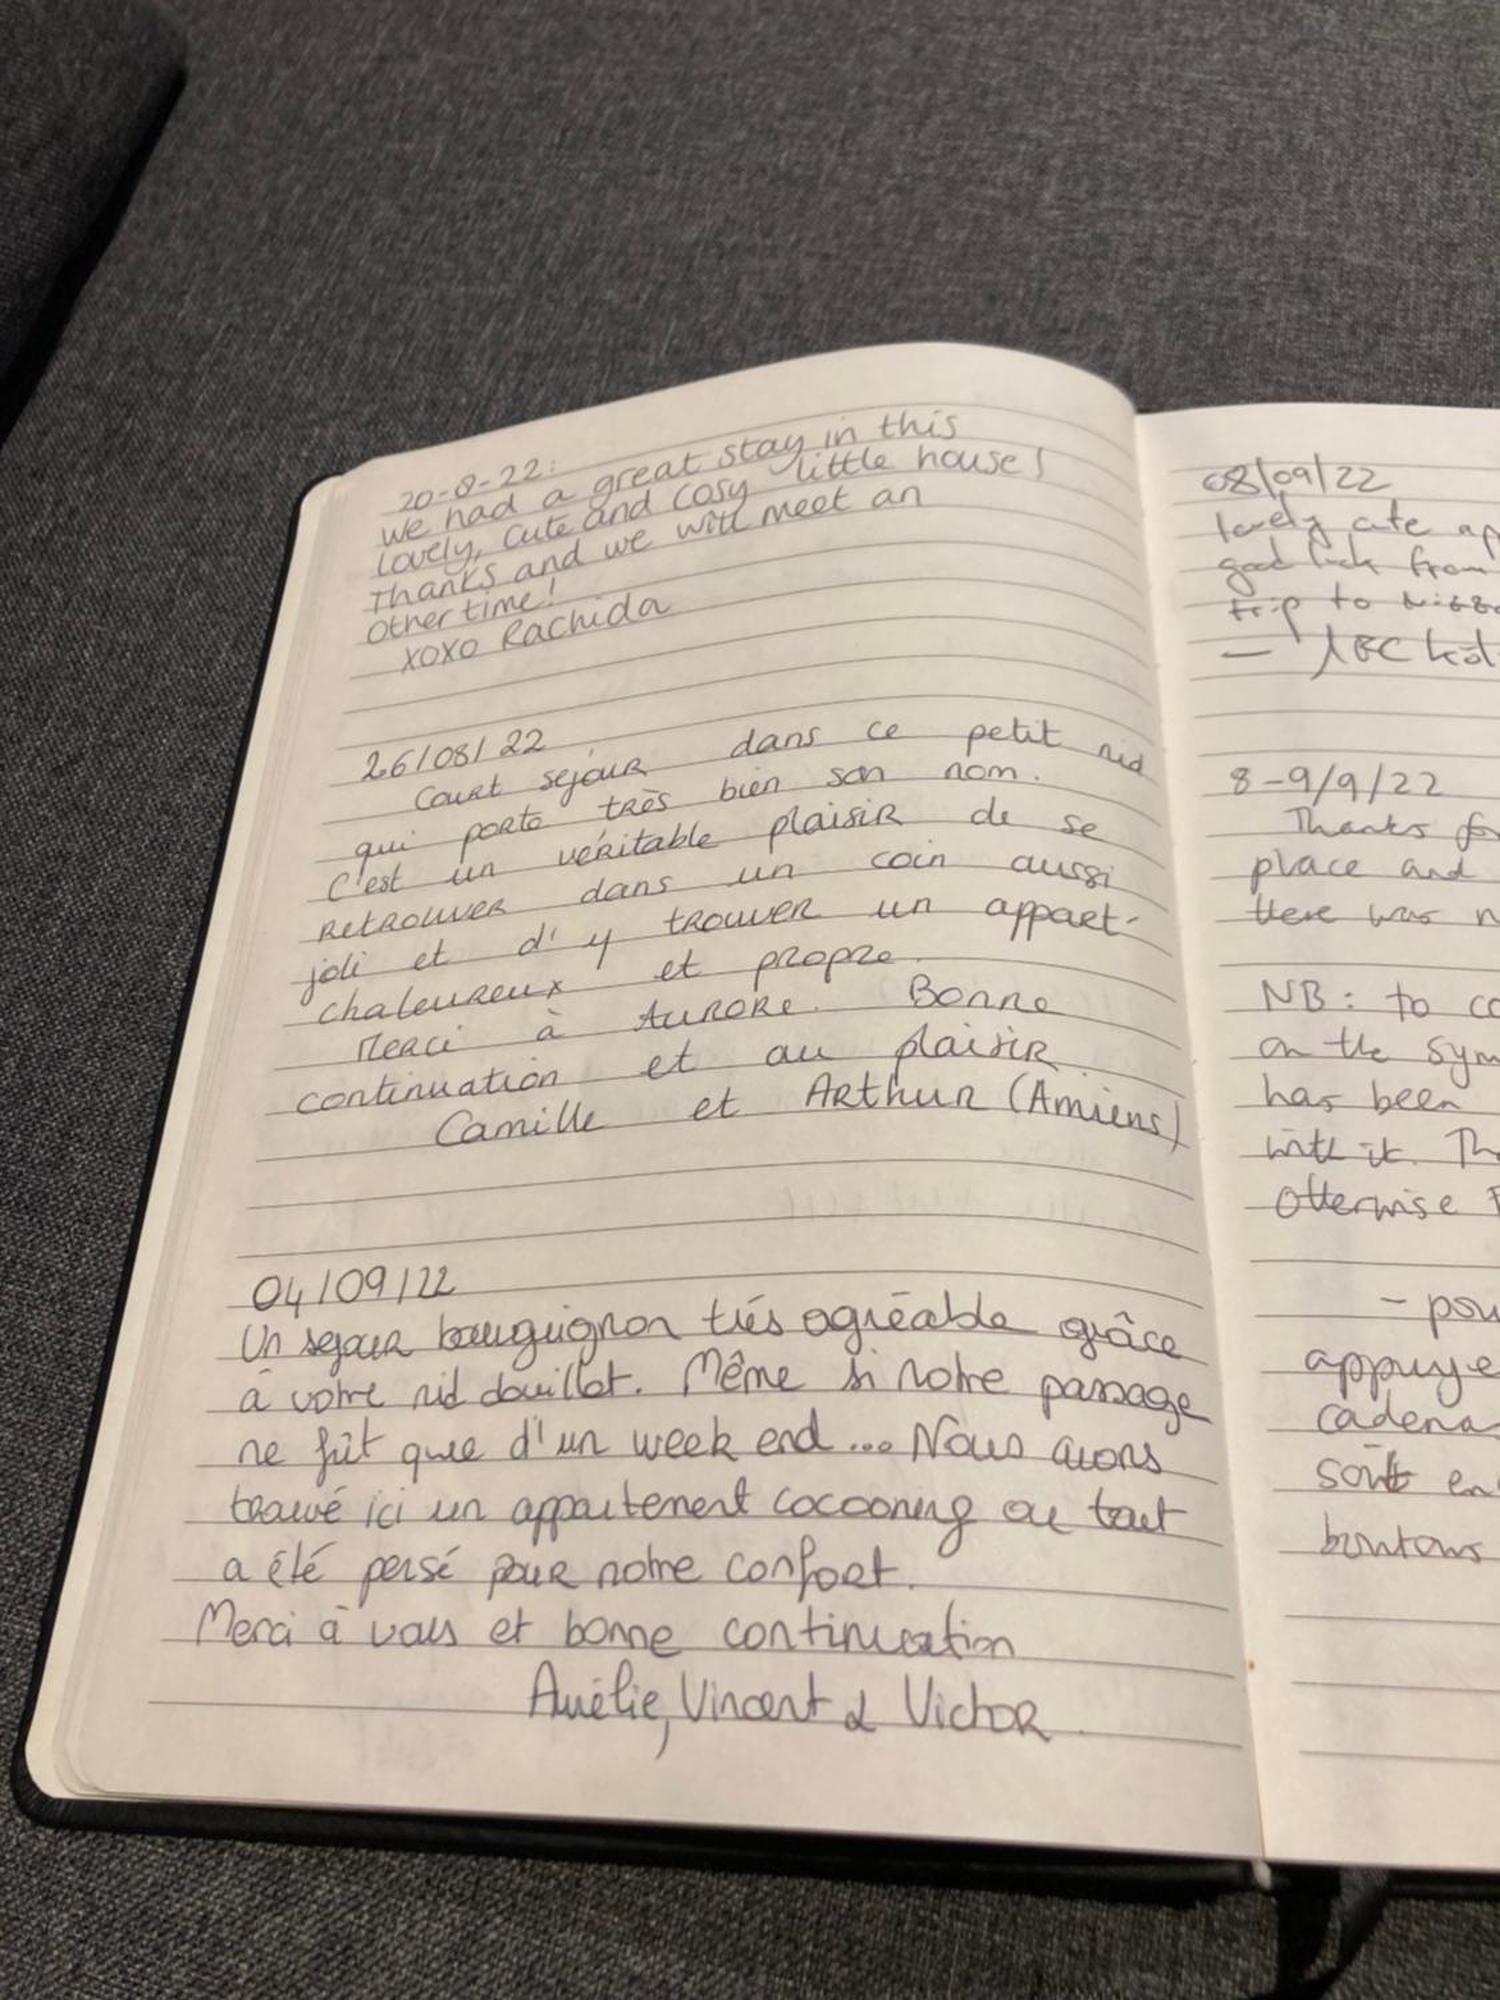 20-8-22:
we had a great stay in this
lovely, cute and cosy little house!
Thanks and we will meet an
other time!
xoxo Rachida
26/08/22
Court sejour dans ce petit nid
qui porte très bien son nom.
C'est un véritable plaisir de se
retrouver dans un coin aussi
joli et d'y trouver un appart-
chaleureux et propre.
Merci à Aurore. Bonne
continuation et au plaisir
Camille et Arthur (Amiens)
04/09/22
Un sejour bourguignon très agréable grâce
à votre nid douillet. Même si notre passage
ne fût que d'un week end... Nous avons
trouvé ici un appartement cocooning ou tout
a été pensé pour notre confort.
Merci à vous et bonne continuation
Aurélie, Vincent & Victor
08/09/22
lovely cute ap
good luck from
trip to
8-9/9/22
Thanks for
place and
there was n
NB: to co
on the sym
has been
with it. Th
Otherwise
- pou
appuye
cadena
sont en
boutons